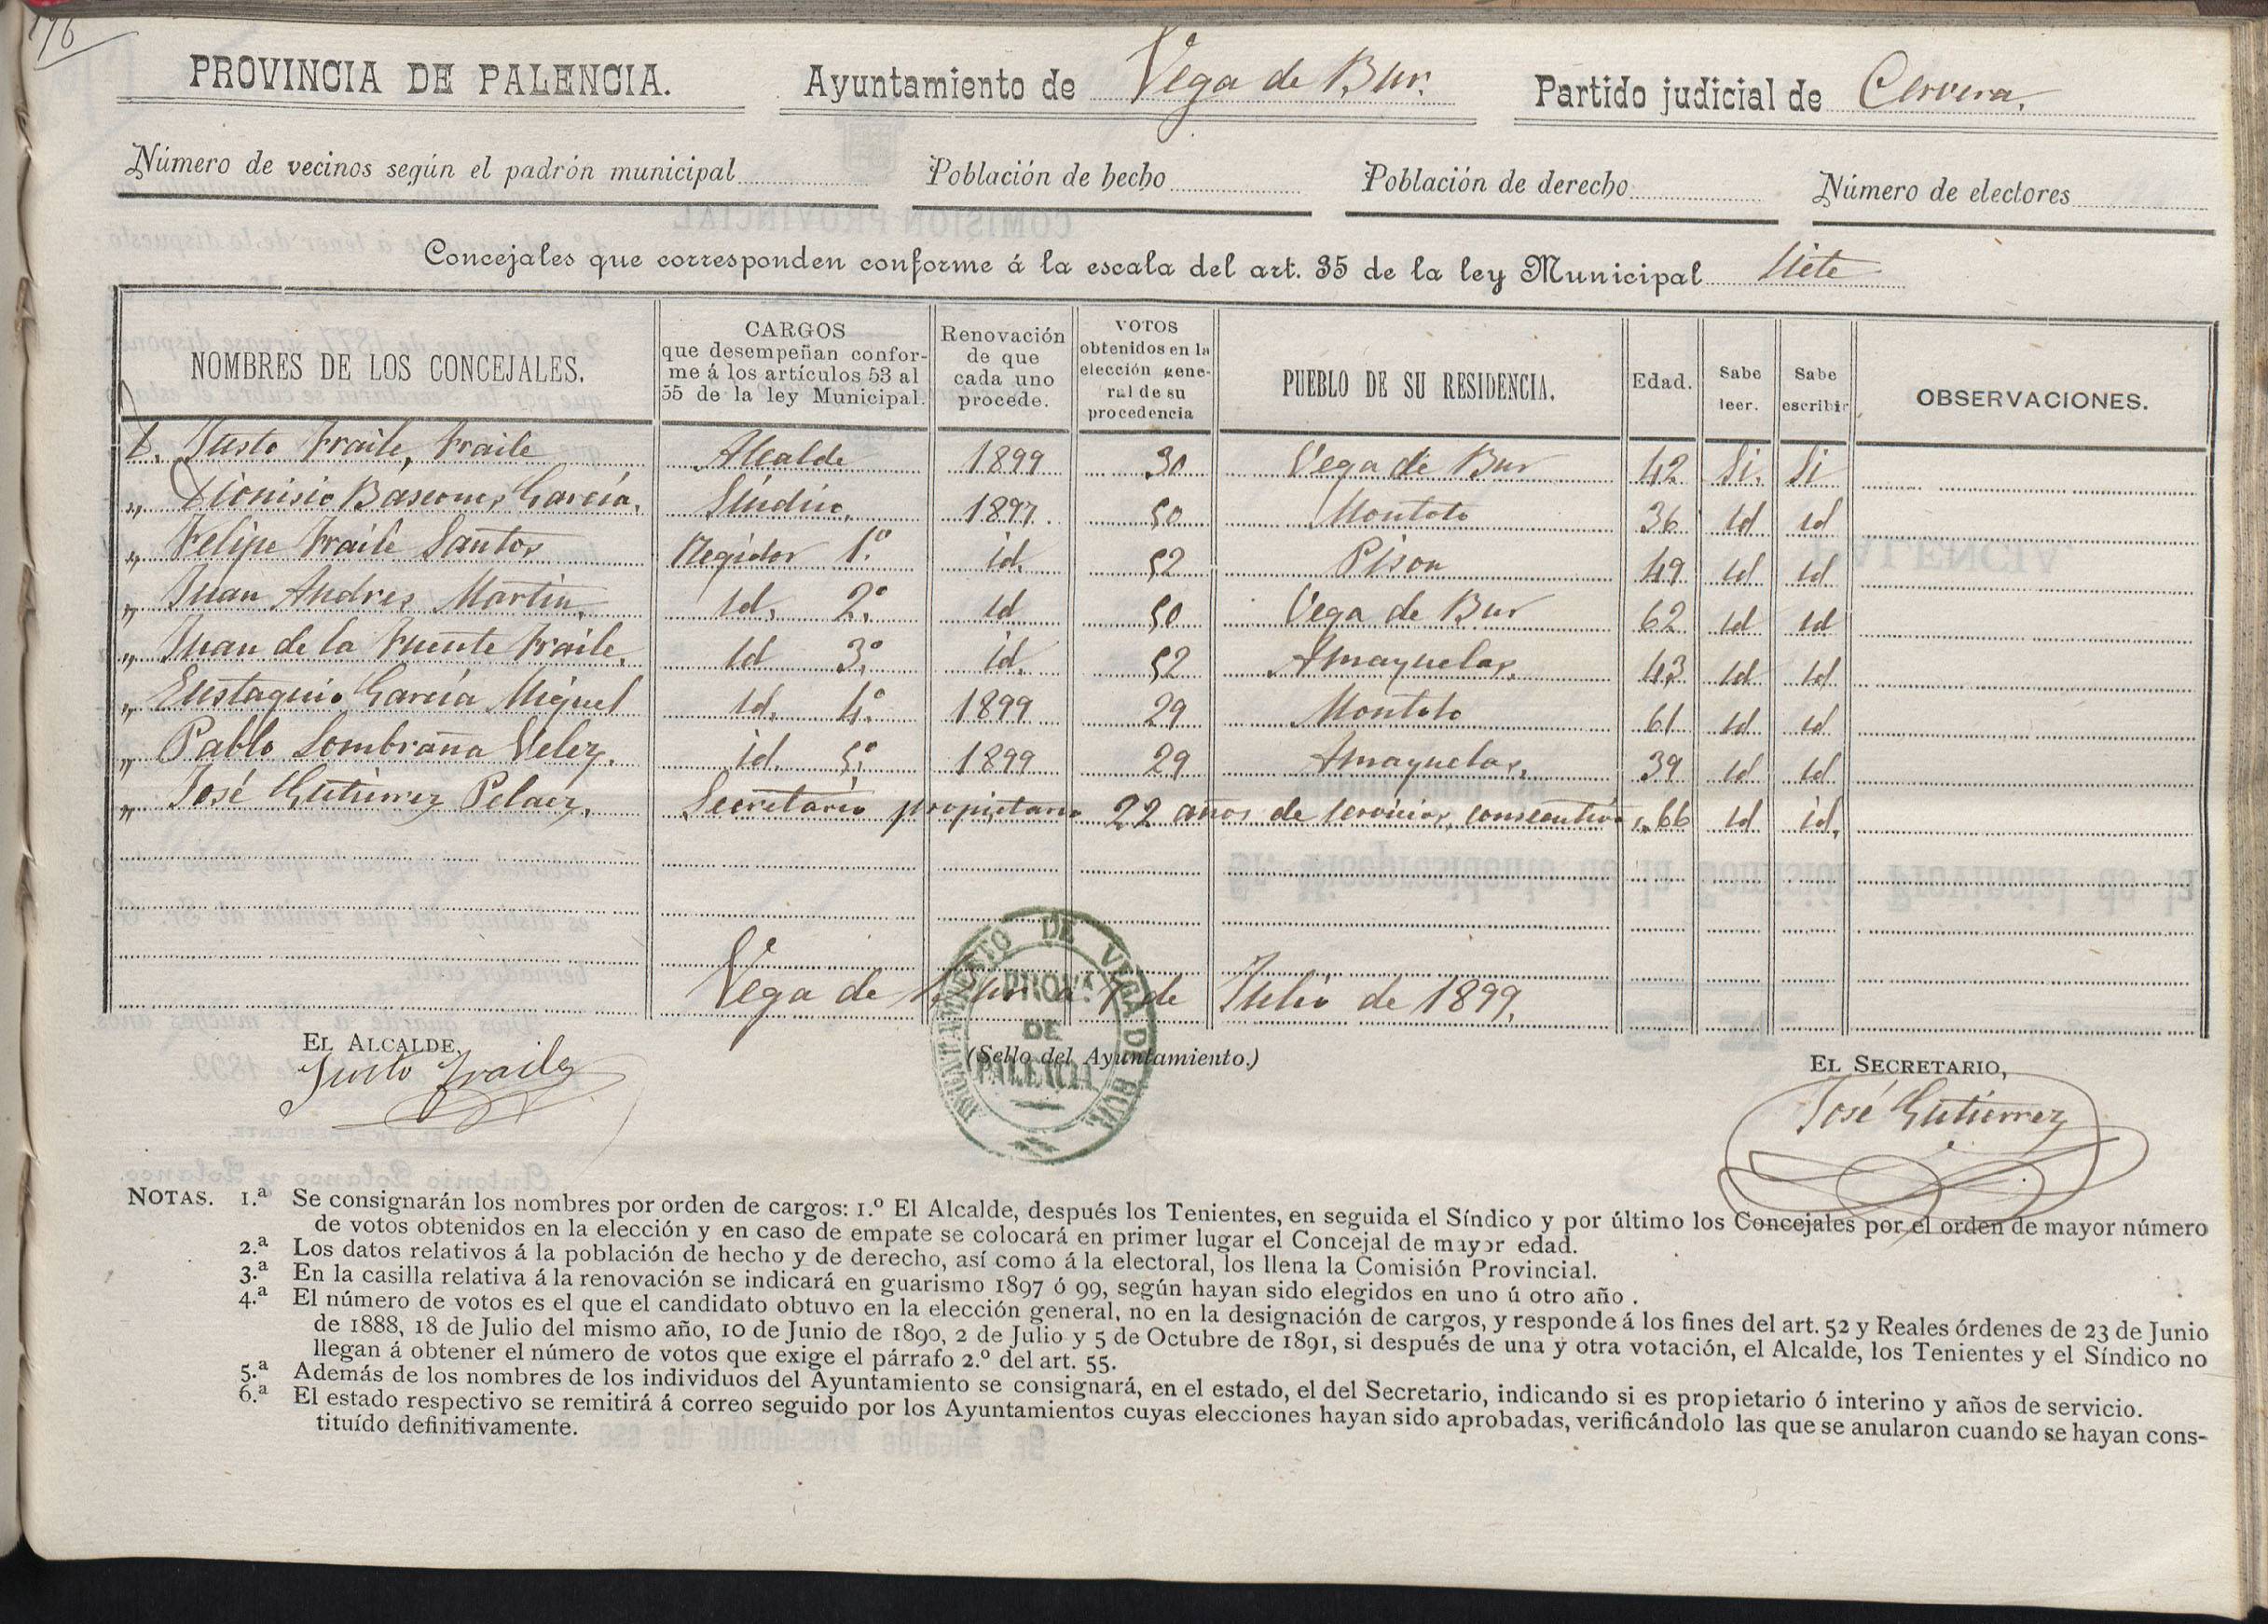 176
PROVINCIA DE PALENCIA. Ayuntamiento de Vega de Bur. Partido judicial de Cervera.
Número de vecinos según el padrón municipal Población de hecho Población de derecho Número de electores
Concejales que corresponden conforme á la escala del art. 35 de la ley Municipal Siete
NOMBRES DE LOS CONCEJALES. CARGOS que desempeñan confor- Renovación VOTOS PUEBLO DE SU RESIDENCIA. Edad. Sabe Sabe OBSERVACIONES.
me á los artículos 53 al de que obtenidos en la leer. escribir
55 de la ley Municipal. cada uno elección gene-
procede. ral de su
procedencia
D. Justo Fraile, Fraile Alcalde 1899 30 Vega de Bur 42 Si. Si
„ Dionisio Bascones García. Síndico. 1897. 50 Montoto 36 id id
„ Felipe Fraile Santos Regidor 1.º id. 52 Pison 49 id id
„ Juan Andres Martin. id. 2.º id 50 Vega de Bur 62 id id
„ Juan de la Fuente Fraile. id 3.º id. 52 Amayuelas. 43 id id
„ Eustaquio García Miguel id. 4.º 1899 29 Montoto 61 id id
„ Pablo Lombraña Velez. id. 5.º 1899 29 Amayuelas. 39 id id
„ José Gutierrez Pelaez. Secretario propietario 22 años de servicios consecutivos. 66 id id.
Vega de Bur á 7 de Julio de 1899.
AYUNTAMIENTO DE VEGA DE BUR
PROV.ª
DE
PALENCIA
EL ALCALDE, (Sello del Ayuntamiento.) EL SECRETARIO,
Justo Fraile José Gutierrez
NOTAS. 1.ª Se consignarán los nombres por orden de cargos: 1.º El Alcalde, después los Tenientes, en seguida el Síndico y por último los Concejales por el orden de mayor número
de votos obtenidos en la elección y en caso de empate se colocará en primer lugar el Concejal de mayor edad.
2.ª Los datos relativos á la población de hecho y de derecho, así como á la electoral, los llena la Comisión Provincial.
3.ª En la casilla relativa á la renovación se indicará en guarismo 1897 ó 99, según hayan sido elegidos en uno ú otro año .
4.ª El número de votos es el que el candidato obtuvo en la elección general, no en la designación de cargos, y responde á los fines del art. 52 y Reales órdenes de 23 de Junio
de 1888, 18 de Julio del mismo año, 10 de Junio de 1890, 2 de Julio y 5 de Octubre de 1891, si después de una y otra votación, el Alcalde, los Tenientes y el Síndico no
llegan á obtener el número de votos que exige el párrafo 2.º del art. 55.
5.ª Además de los nombres de los individuos del Ayuntamiento se consignará, en el estado, el del Secretario, indicando si es propietario ó interino y años de servicio.
6.ª El estado respectivo se remitirá á correo seguido por los Ayuntamientos cuyas elecciones hayan sido aprobadas, verificándolo las que se anularon cuando se hayan cons-
tituído definitivamente.